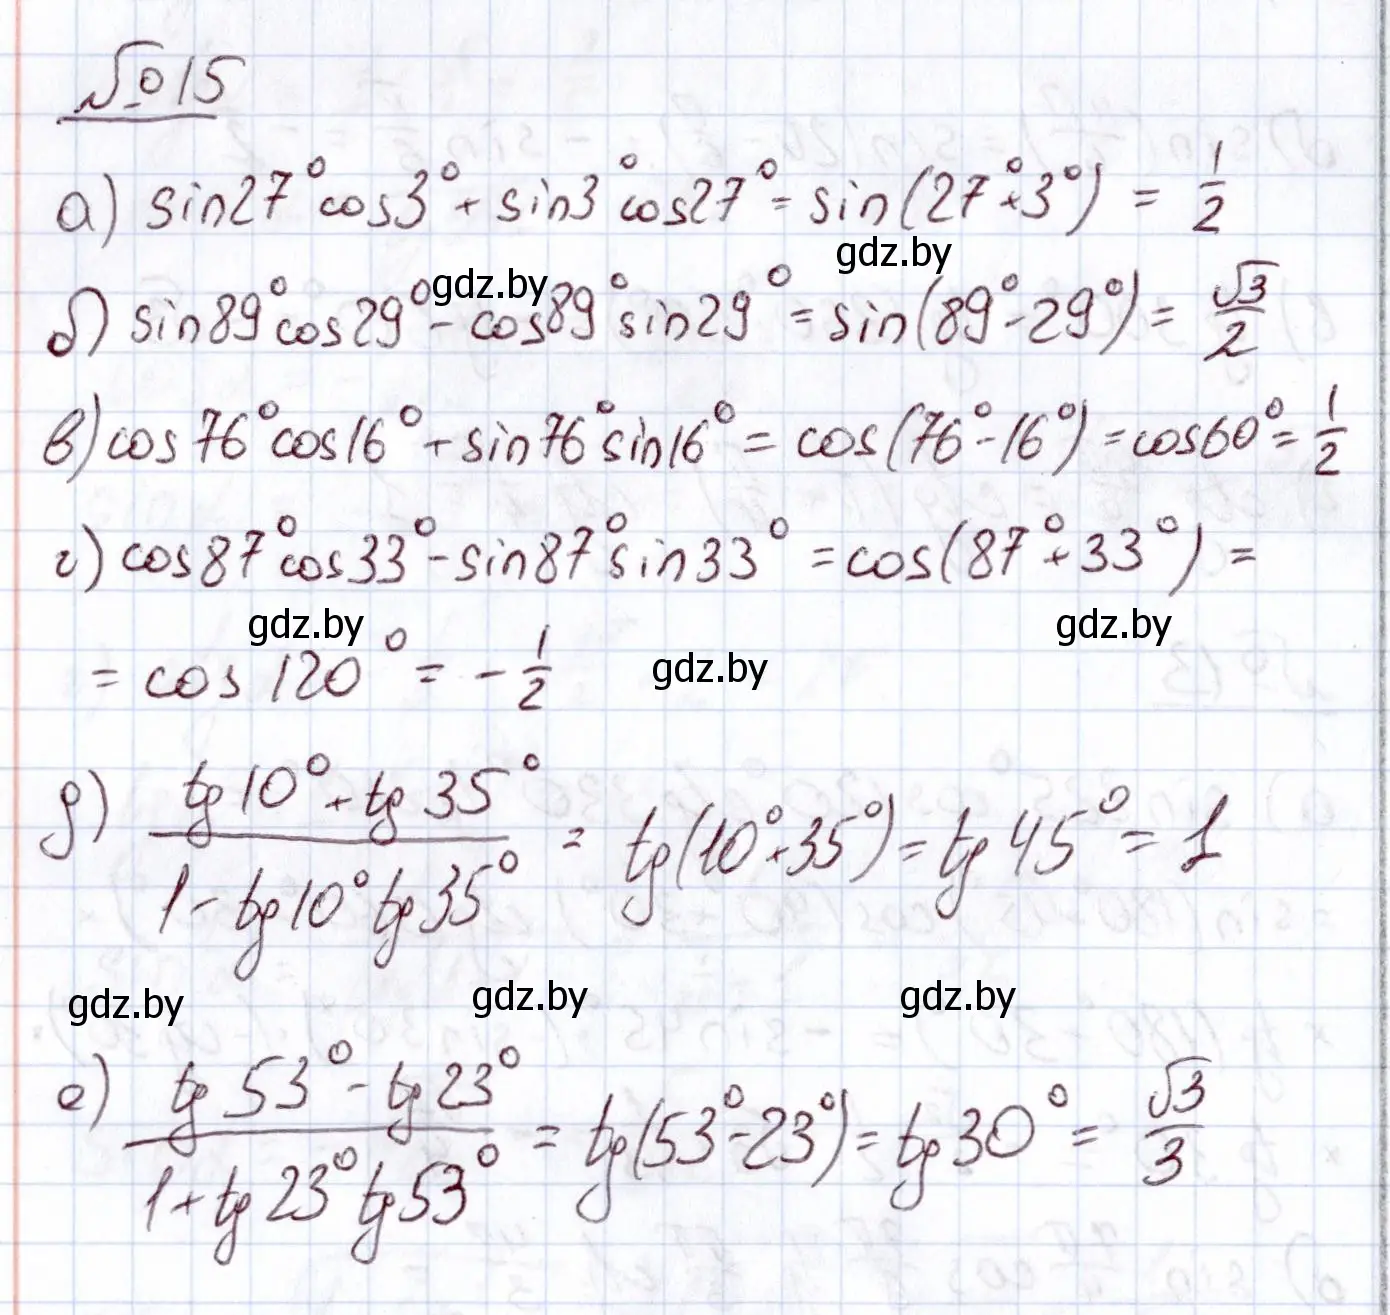 №15
а) sin27°cos3° + sin3°cos27° = sin(27°+3°) = 1/2
gdz.by
gdz.by
б) sin89°cos29° - cos89°sin29° = sin(89°-29°) = √3/2
в) cos76°cos16° + sin76°sin16° = cos(76°-16°) = cos60° = 1/2
г) cos87°cos33° - sin87°sin33° = cos(87°+33°) =
gdz.by gdz.by
= cos120° = -1/2
gdz.by
д) (tg10° + tg35°)/(1 - tg10°tg35°) = tg(10°+35°) = tg45° = 1
gdz.by gdz.by gdz.by
е) (tg53° - tg23°)/(1 + tg23°tg53°) = tg(53°-23°) = tg30° = √3/3